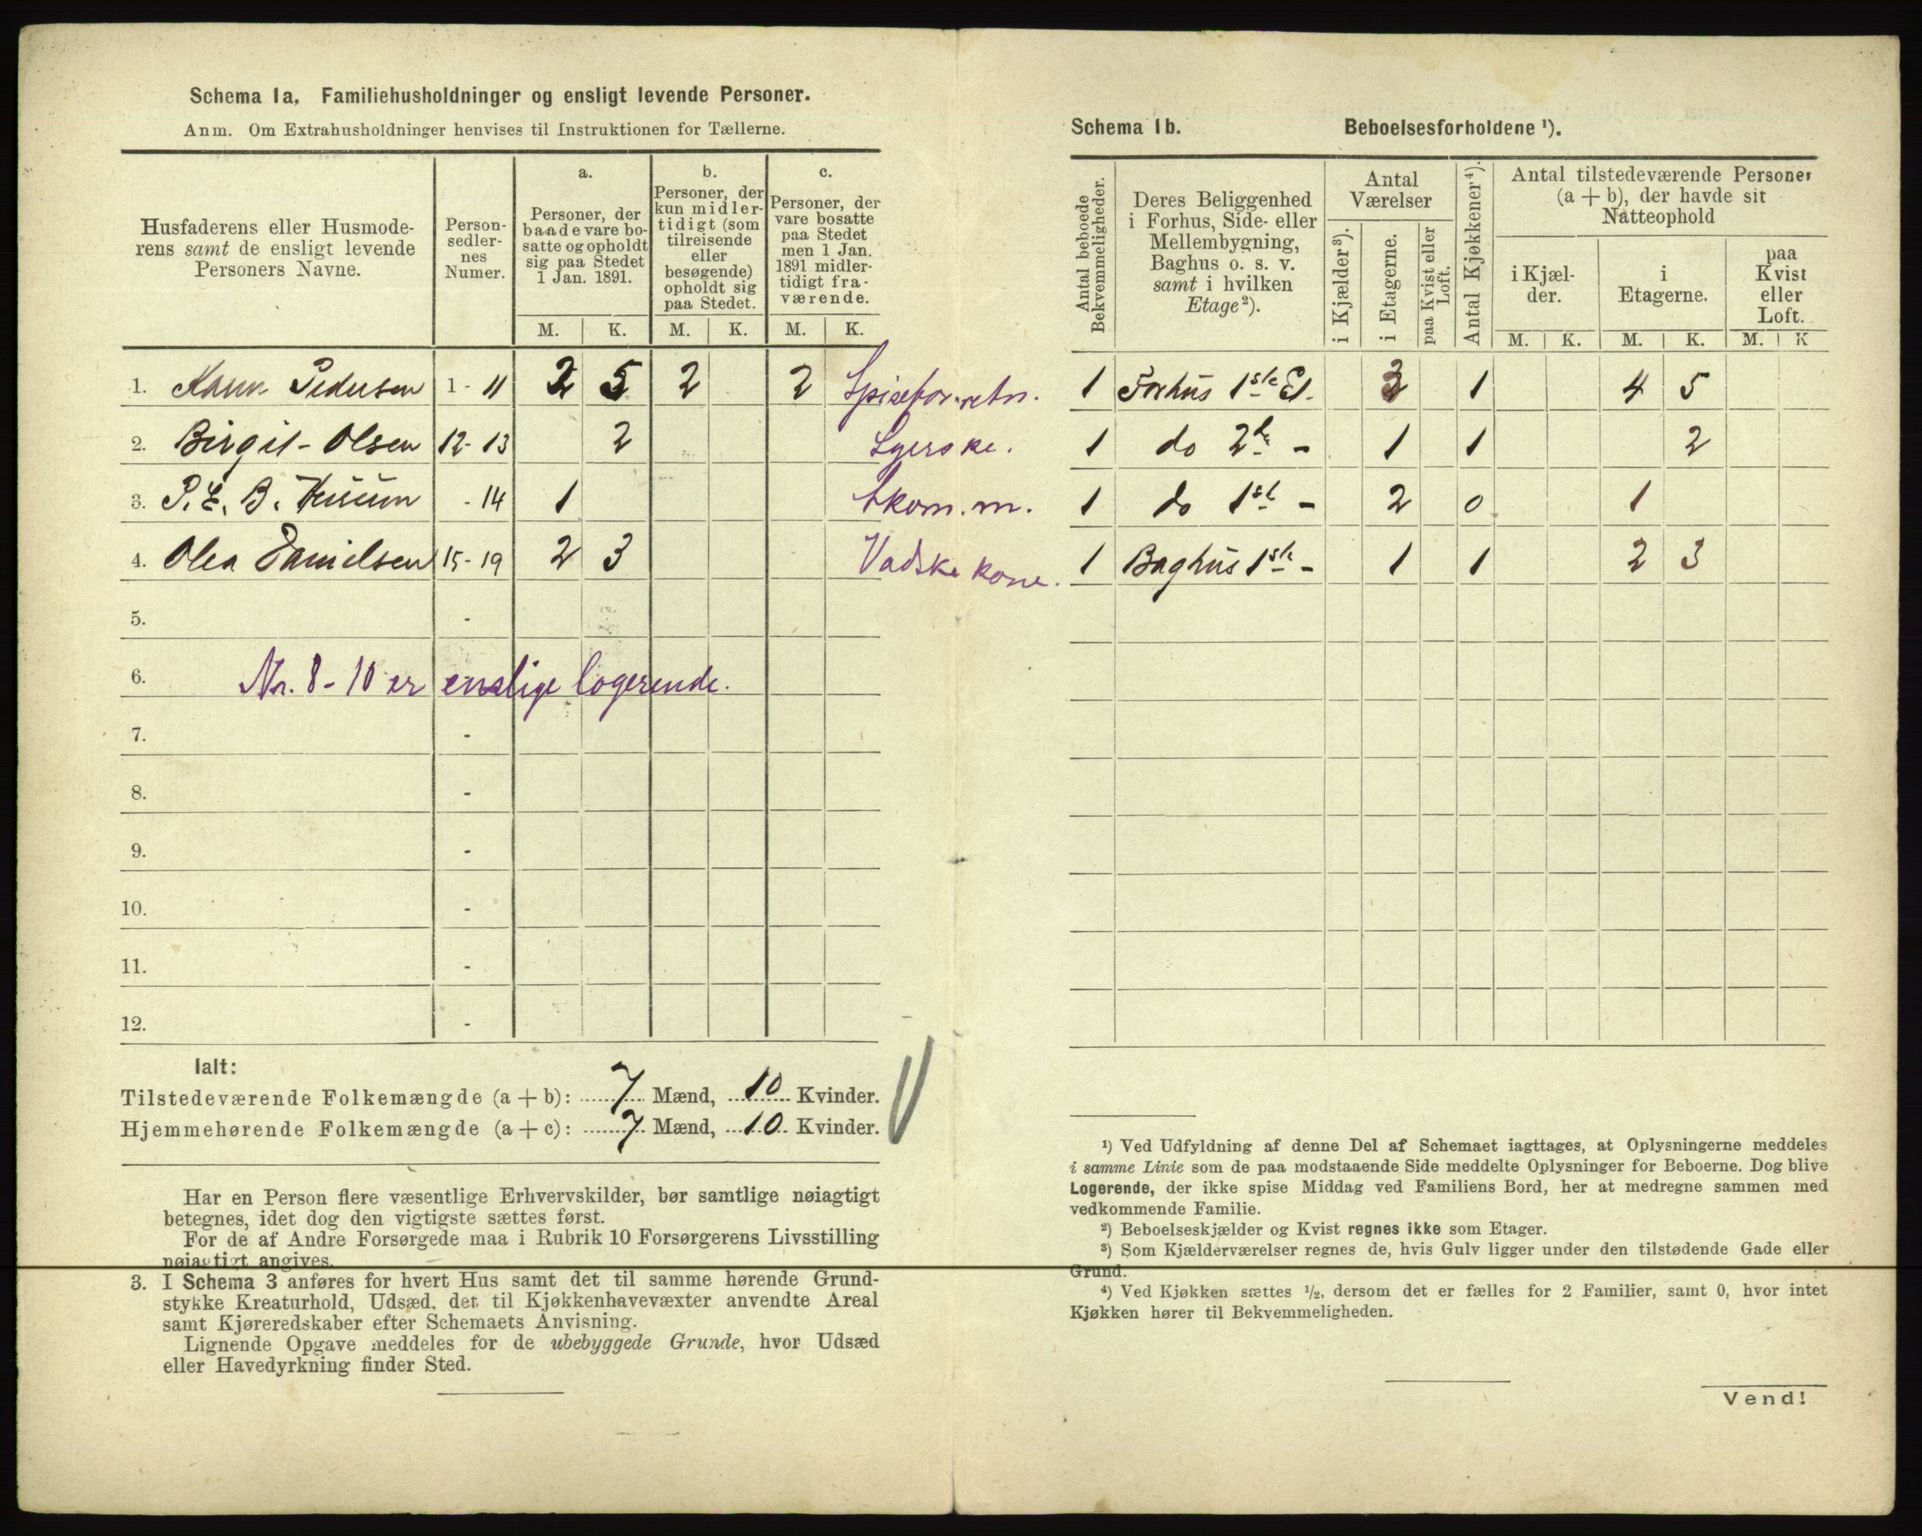 Schema 1a. Familiehusholdninger og ensligt levende Personer.
Anm. Om Extrahusholdninger henvises til Instruktionen for Tællerne.
Husfaderens eller Husmoderens samt de ensligt levende Personers Navne.
Personsedlernes Numer.
a. Personer, der baade vare bosatte og opholdt sig paa Stedet 1 Jan. 1891.
b. Personer, der kun midlertidigt (som tilreisende eller besøgende) opholdt sig paa Stedet.
c. Personer, der vare bosatte paa Stedet men 1 Jan. 1891 midlertidigt fraværende.
M. K. M. K. M. K.
1. Karen Pedersen 1 - 11 2 5 2 2 Spiseforretn.
2. Birgit Olsen 12 - 13 2 Syerske.
3. P. E. B. Husum - 14 1
4. Olea Danielsen 15 - 19 2 3 Vadskekone.
5. -
6. Nr. 8 - 10 er enslige logerende.
7. -
8. -
9. -
10. -
11. -
12. -
Ialt:
Tilstedeværende Folkemængde (a + b): 7 Mænd, 10 Kvinder.
Hjemmehørende Folkemængde (a + c): 7 Mænd, 10 Kvinder.
Har en Person flere væsentlige Erhvervskilder, bør samtlige nøiagtigt
betegnes, idet dog den vigtigste sættes først.
For de af Andre Forsørgede maa i Rubrik 10 Forsørgerens Livsstilling
nøiagtigt angives.
3. I Schema 3 anføres for hvert Hus samt det til samme hørende Grund-
stykke Kreaturhold, Udsæd, det til Kjøkkenhavevæxter anvendte Areal
samt Kjøreredskaber efter Schemaets Anvisning.
Lignende Opgave meddeles for de ubebyggede Grunde, hvor Udsæd
eller Havedyrkning finder Sted.
Schema 1b. Beboelsesforholdene ¹).
Antal beboede Bekvemmeligheder.
Deres Beliggenhed i Forhus, Side- eller Mellembygning, Baghus o. s. v. samt i hvilken Etage ²).
Antal Værelser
i Kjælder ³). i Etagerne. paa Kvist eller Loft.
Antal Kjøkkener ⁴).
Antal tilstedeværende Personer (a + b), der havde sit Natteophold
i Kjælder. i Etagerne. paa Kvist eller Loft.
M. K. M. K. M. K
1 Forhus 1ste Et. 3 1 4 5
1 do 2de - 1 1 2
1 do 1ste - 2 0 1
1 Baghus 1ste - 1 1 2 3
¹) Ved Udfyldning af denne Del af Schemaet iagttages, at Oplysningerne meddeles
i samme Linie som de paa modstaaende Side meddelte Oplysninger for Beboerne. Dog blive
Logerende, der ikke spise Middag ved Familiens Bord, her at medregne sammen med
vedkommende Familie.
²) Beboelseskjælder og Kvist regnes ikke som Etager.
³) Som Kjælderværelser regnes de, hvis Gulv ligger under den tilstødende Gade eller
Grund.
⁴) Ved Kjøkken sættes ½, dersom det er fælles for 2 Familier, samt 0, hvor intet
Kjøkken hører til Bekvemmeligheden.
Vend!